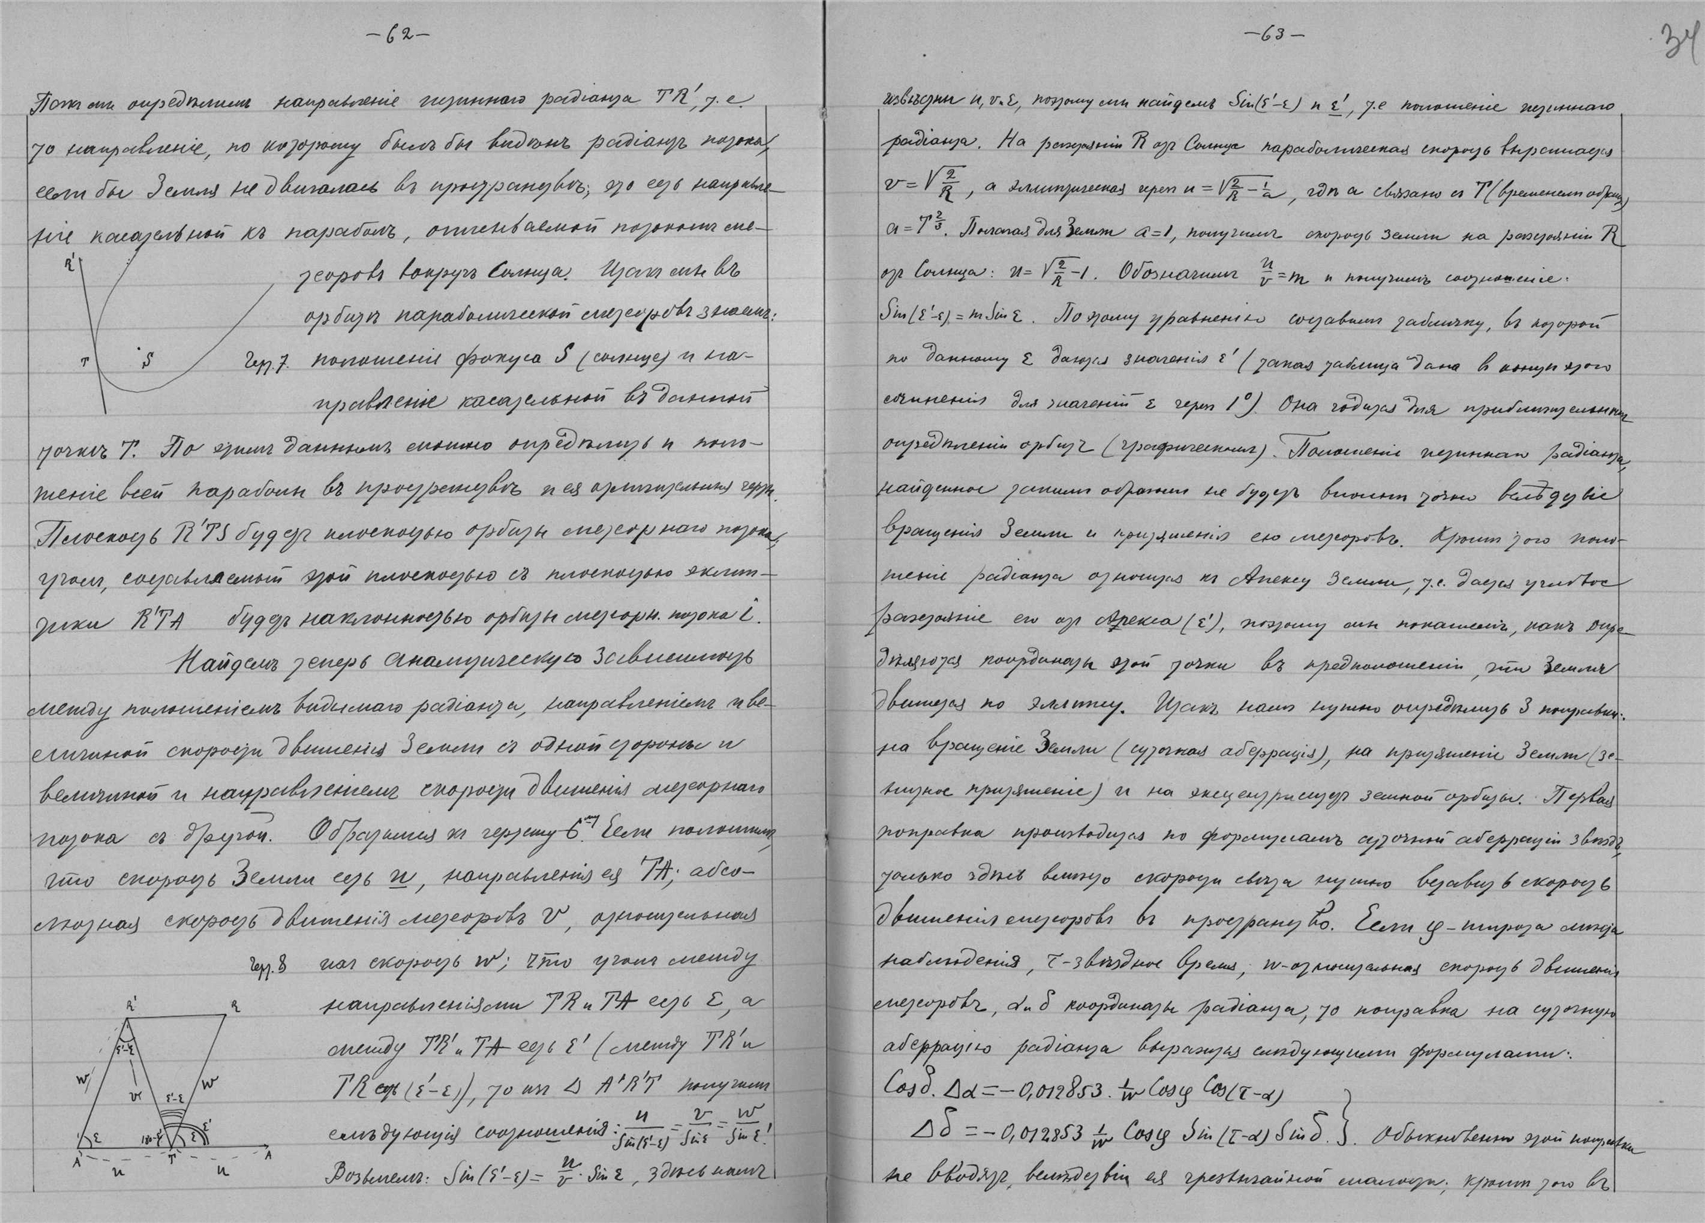 –62–
Такъ мы опредѣлимъ направленіе истиннаго радіанта TR', т.е.
то направленіе, по которому былъ бы видѣнъ радіантъ потока,
если бы Земля не двигалась въ пространствѣ; это есть направле-
ніе касательной къ параболѣ, описываемой потокомъ ме-
теоровъ вокругъ Солнца. Итакъ мы въ
орбитѣ параболической метеоровъ знаемъ:
Черт. 7. положеніе фокуса S (солнце) и на-
правленіе касательной въ данной
R'
T
S
точкѣ T. По этимъ даннымъ можно опредѣлить и поло-
женіе всей параболы въ пространствѣ и ея отличительныя черты.
Плоскость R'TS будетъ плоскостью орбиты метеорнаго потока,
уголъ, составляемый этой плоскостью съ плоскостью эклип-
тики R'TA будетъ наклонностью орбиты метеорн. потока i.
Найдемъ теперь аналитическую зависимость
между положеніемъ видимаго радіанта, направленіемъ и ве-
личиной скорости движенія Земли съ одной стороны и
величиной и направленіемъ скорости движенія метеорнаго
потока съ другой. Обратимся къ чертежу 6му. Если положимъ,
что скорость Земли есть u, направленія ея TA; абсо-
лютная скорость движенія метеоровъ v, относительная
Черт. 8 ихъ скорость w; что уголъ между
направленіями TR и TA есть ε, а
между TR' и TA есть ε' (между TR' и
TR есть (ε'-ε)), то изъ Δ A'R'T получимъ
слѣдующія соотношенія: u/Sin(ε'-ε) = v/Sin ε = w/Sin ε'.
Возьмемъ: Sin(ε'-ε) = u/v · Sin ε, здѣсь намъ
R' R
ε'-ε
w v w
ε'-ε
ε 180-ε' ε ε'
A' T A
u u
–63–
34
извѣстны u, v и ε, поэтому мы найдемъ Sin(ε'-ε) и ε', т.е положеніе истиннаго
радіанта. На разстояніи R отъ Солнца параболическая скорость выразится
v = √2/R, а эллиптическая через u = √2/R - 1/a, гдѣ a связано съ T (временемъ обращ.)
a = T^2/3. Полагая для Земли a=1, получимъ скорость Земли на разстояніи R
отъ Солнца: u = √2/R - 1. Обозначимъ u/v = m и получимъ соотношеніе:
Sin(ε'-ε) = m Sin ε. По этому уравненію составимъ табличку, въ которой
по данному ε даются значенія ε' (такая таблица дана въ концѣ этого
сочиненія для значеній ε через 1°) Она годится для приблизительныхъ
опредѣленій орбитъ (графическихъ). Положеніе истиннаго радіанта,
найденное такимъ образомъ не будетъ вполнѣ точно вслѣдствіе
вращенія Земли и притяженія ею метеоровъ. Кромѣ того поло-
женіе радіанта относится къ Апексу Земли, т.е. дается угловое
разстояніе его отъ Апекса (ε'), поэтому мы покажемъ, какъ опре-
дѣляются координаты этой точки въ предположеніи, что Земля
движется по эллипсу. Итакъ намъ нужно опредѣлить 3 поправки:
на вращеніе Земли (суточная аберрація), на притяженіе Земли (зе-
нитное притяженіе) и на эксцентриситетъ земной орбиты. Первая
поправка производится по формуламъ суточной аберраціи звѣздъ,
только здѣсь вмѣсто скорости свѣта нужно вставить скорость
движенія метеоровъ въ пространствѣ. Если φ–широта мѣста
наблюденія, τ–звѣздное время, w–относительная скорость движенія
метеоровъ, α и δ координаты радіанта, то поправка на суточную
аберрацію радіанта выразится слѣдующими формулами:
Cos δ. Δα = – 0,012853. 1/w Cos φ Cos(τ-α)
Δδ = – 0,012853 1/w Cos φ Sin (τ-α) Sin δ. }. Обыкновенно этой поправки
не вводятъ, вслѣдствіи ея чрезвычайной малости; кромѣ того въ